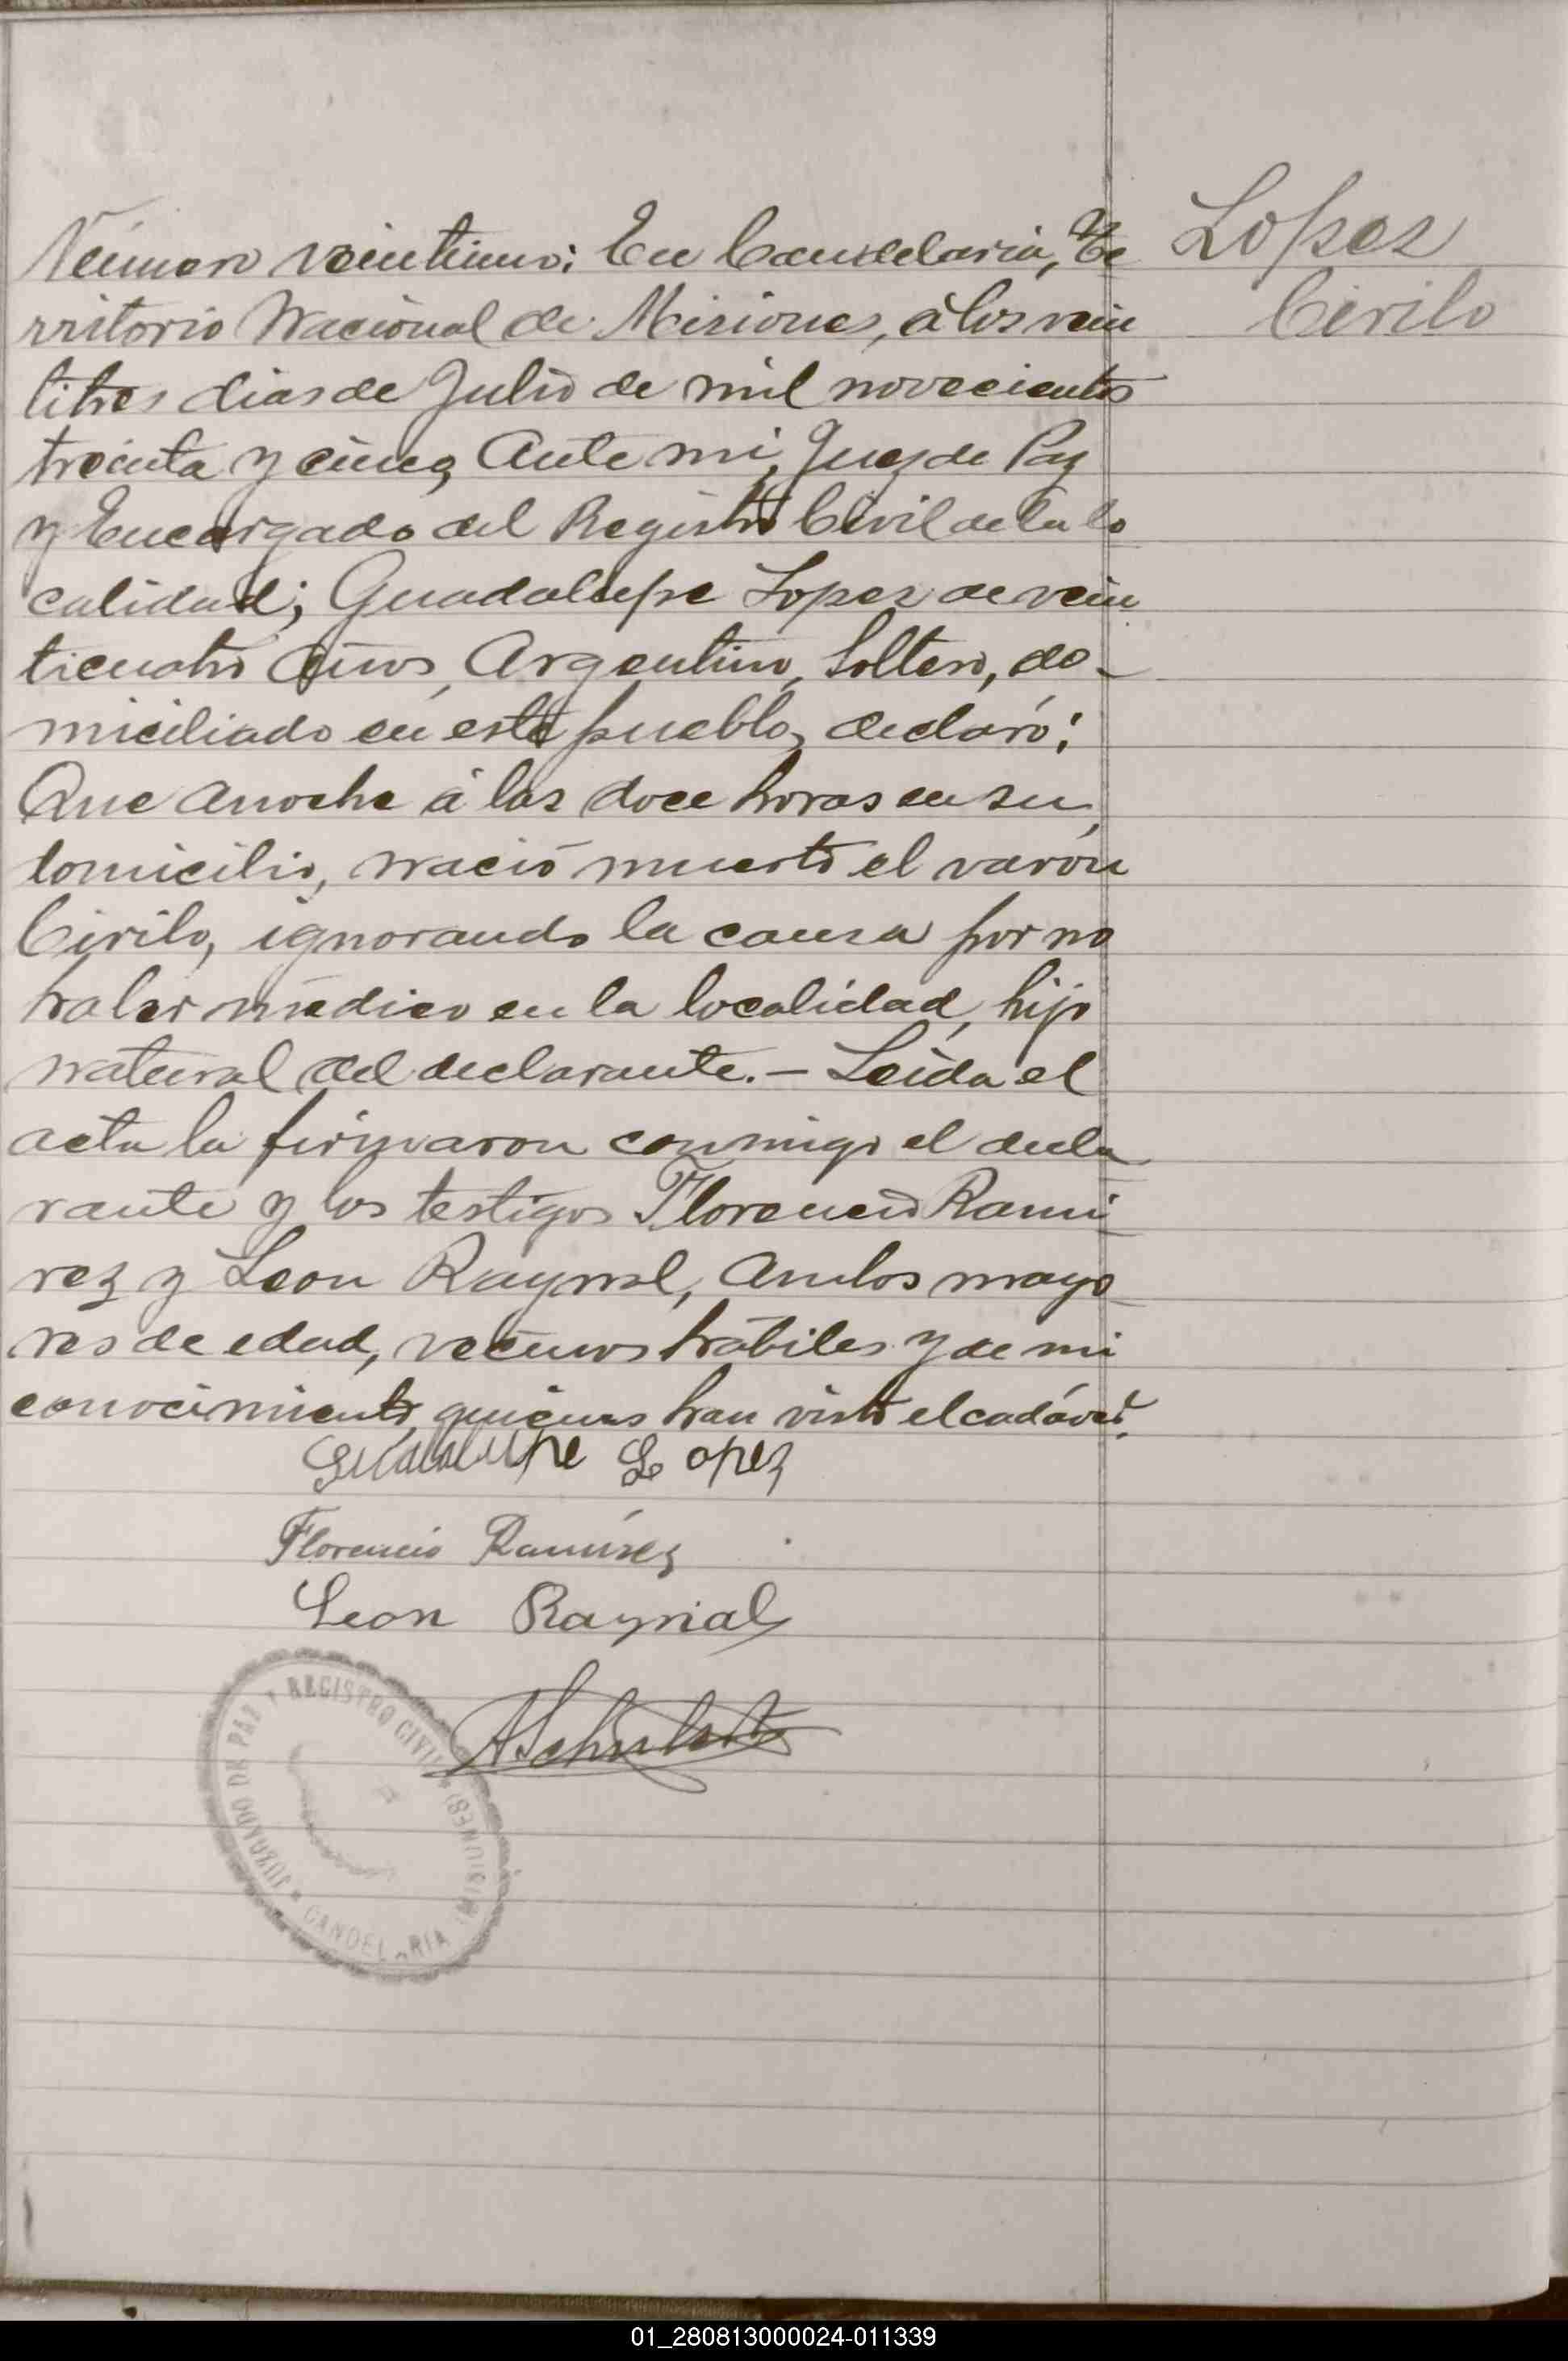 Número veintiuno: En Candelaria, Te
rritorio Nacional de Misiones, á los vein
titres dias de Julio de mil novecientos
treinta y cinco, Ante mi, Juez de Paz
y Encargado del Registro Civil de la lo
calidad; Guadalupe Lopez de vein
ticuatro años, Argentino, Soltero, do-
miciliado en este pueblo, declaró:
Que anoche á las doce horas en su
domicilio, nació muerto el varón
Cirilo, ignorando la causa por no
haber médico en la localidad, hijo
natural del declarante.- Leida el
acta la firmaron conmigo el decla
rante y los testigos Florencio Rami
rez y Leon Raynal, Ambos mayo
res de edad, vecinos hábiles y de mi
conocimiento, quienes han visto el cadáver.
Lopez
Cirilo
Guadalupe Lopez
Florencio Ramírez
Leon Raynal
JUZGADO DE PAZ Y REGISTRO CIVIL
CANDELARIA (MISIONES)
01_280813000024-011339